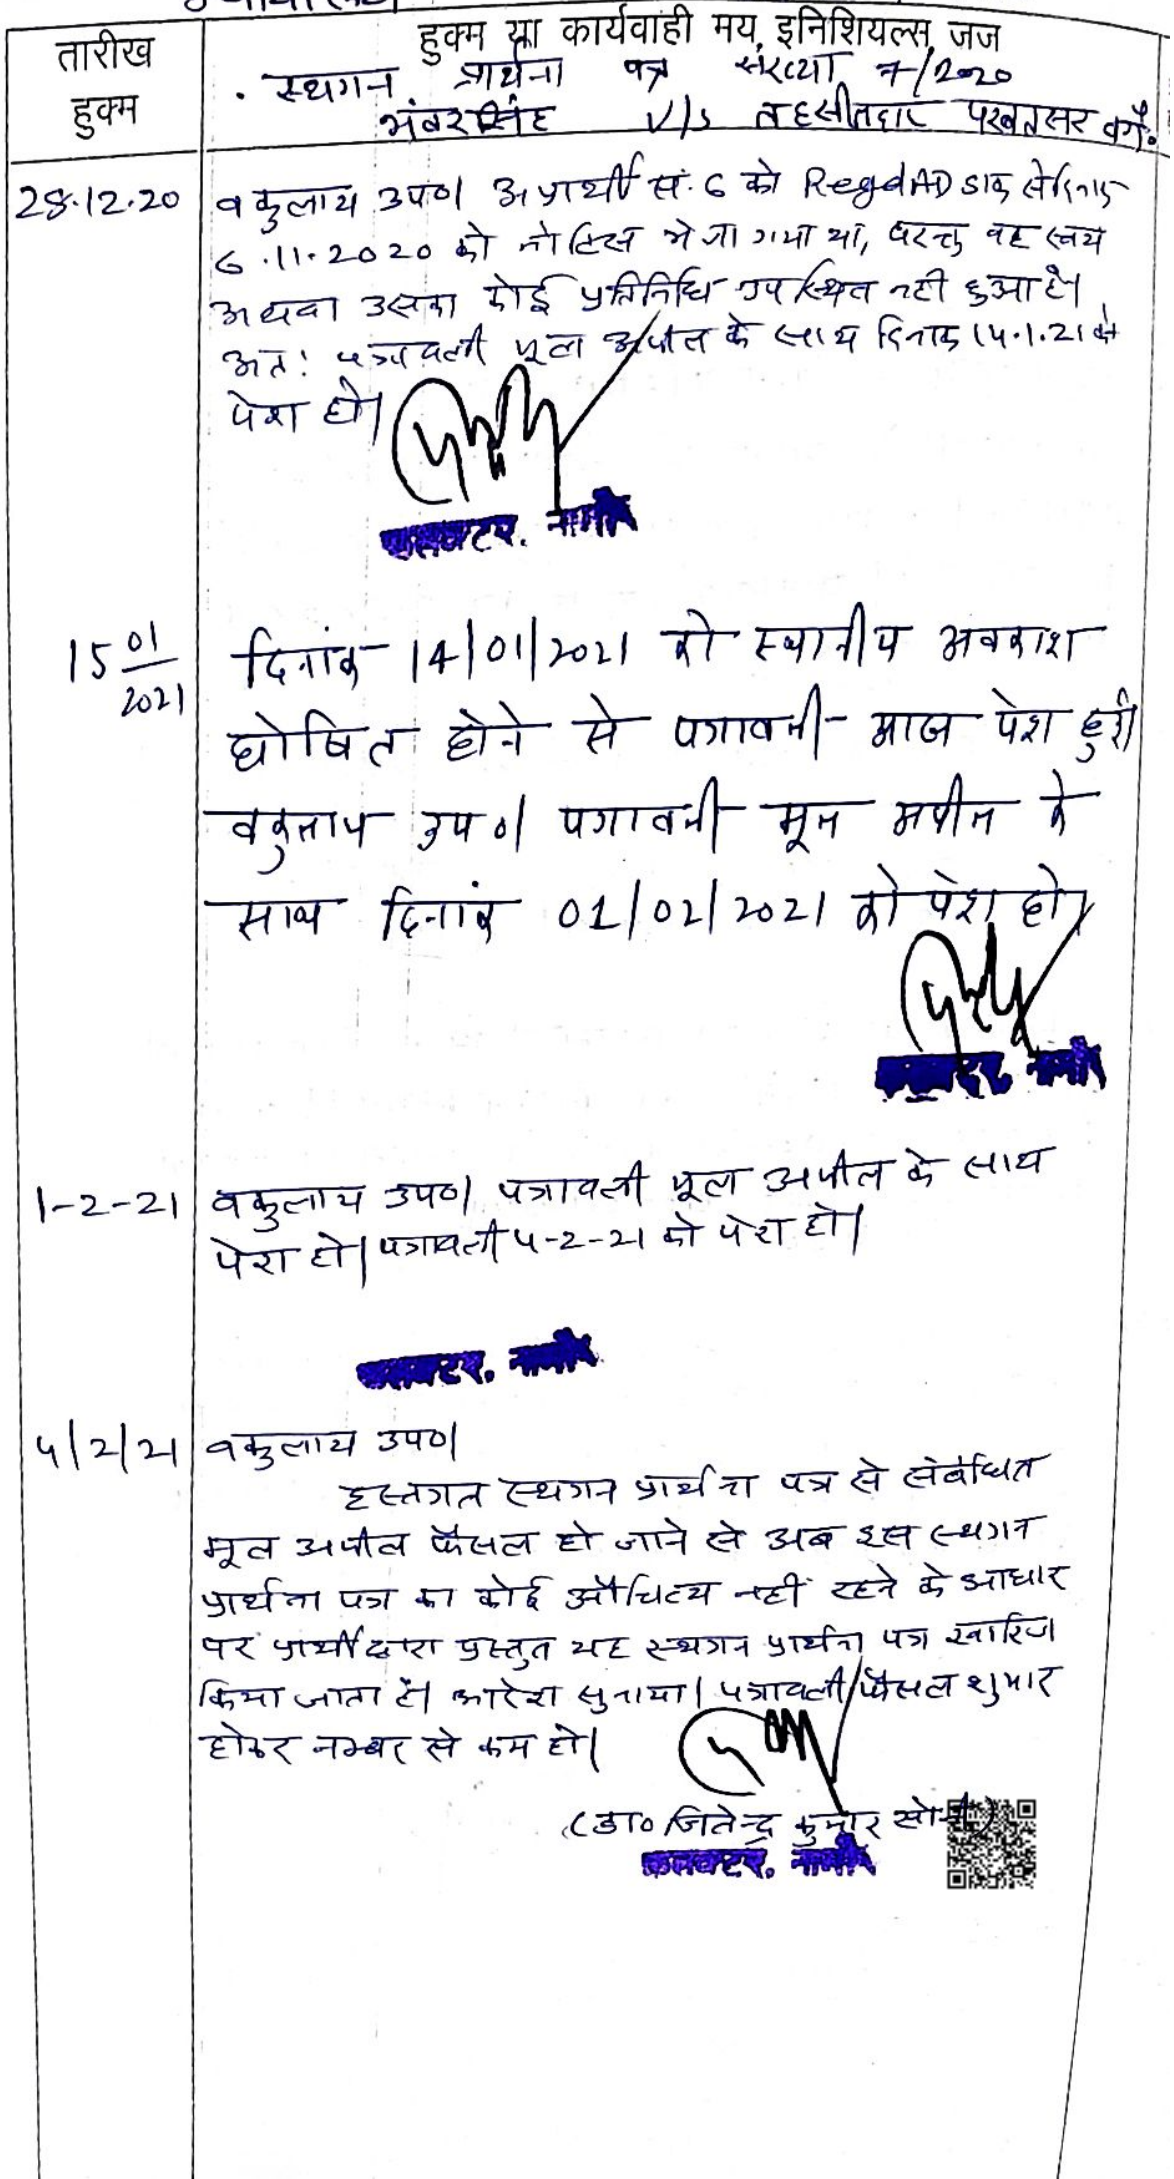 तारीख
हुक्म
हुक्म या कार्यवाही मय इनिशियल्स जज
स्थगन प्रार्थना पत्र संख्या 7/2020
भंवरसिंह V/s तहसीलदार परबतसर वगै.
28.12.20
वकुलाय उप०। अप्रार्थी सं. 6 को Regd AD डाक से दिनांक
6.11.2020 को नोटिस भेजा गया था, परन्तु वह स्वयं
अथवा उसका कोई प्रतिनिधि उपस्थित नही हुआ है।
अत: पत्रावली मूल अपील के साथ दिनांक 14.1.21 को
पेश हो।
कलक्टर, नागौर
15 01/2021
दिनांक 14/01/2021 को स्थानीय अवकाश
घोषित होने से पत्रावली आज पेश हुई।
वकुलाय उप०। पत्रावली मूल अपील के
साथ दिनांक 01/02/2021 को पेश हो।
कलक्टर, नागौर
1-2-21
वकुलाय उप०। पत्रावली मूल अपील के साथ
पेश हो। पत्रावली 4-2-21 को पेश हो।
कलक्टर, नागौर
4/2/21
वकुलाय उप०।
हस्तगत स्थगन प्रार्थना पत्र से संबंधित
मूल अपील फैसल हो जाने से अब इस स्थगन
प्रार्थना पत्र का कोई औचित्य नहीं रहने के आधार
पर प्रार्थी द्वारा प्रस्तुत यह स्थगन प्रार्थना पत्र खारिज
किया जाता है। आदेश सुनाया। पत्रावली फैसल शुमार
होकर नम्बर से कम हो।
(डा० जितेन्द्र कुमार सोनी)
कलक्टर, नागौर